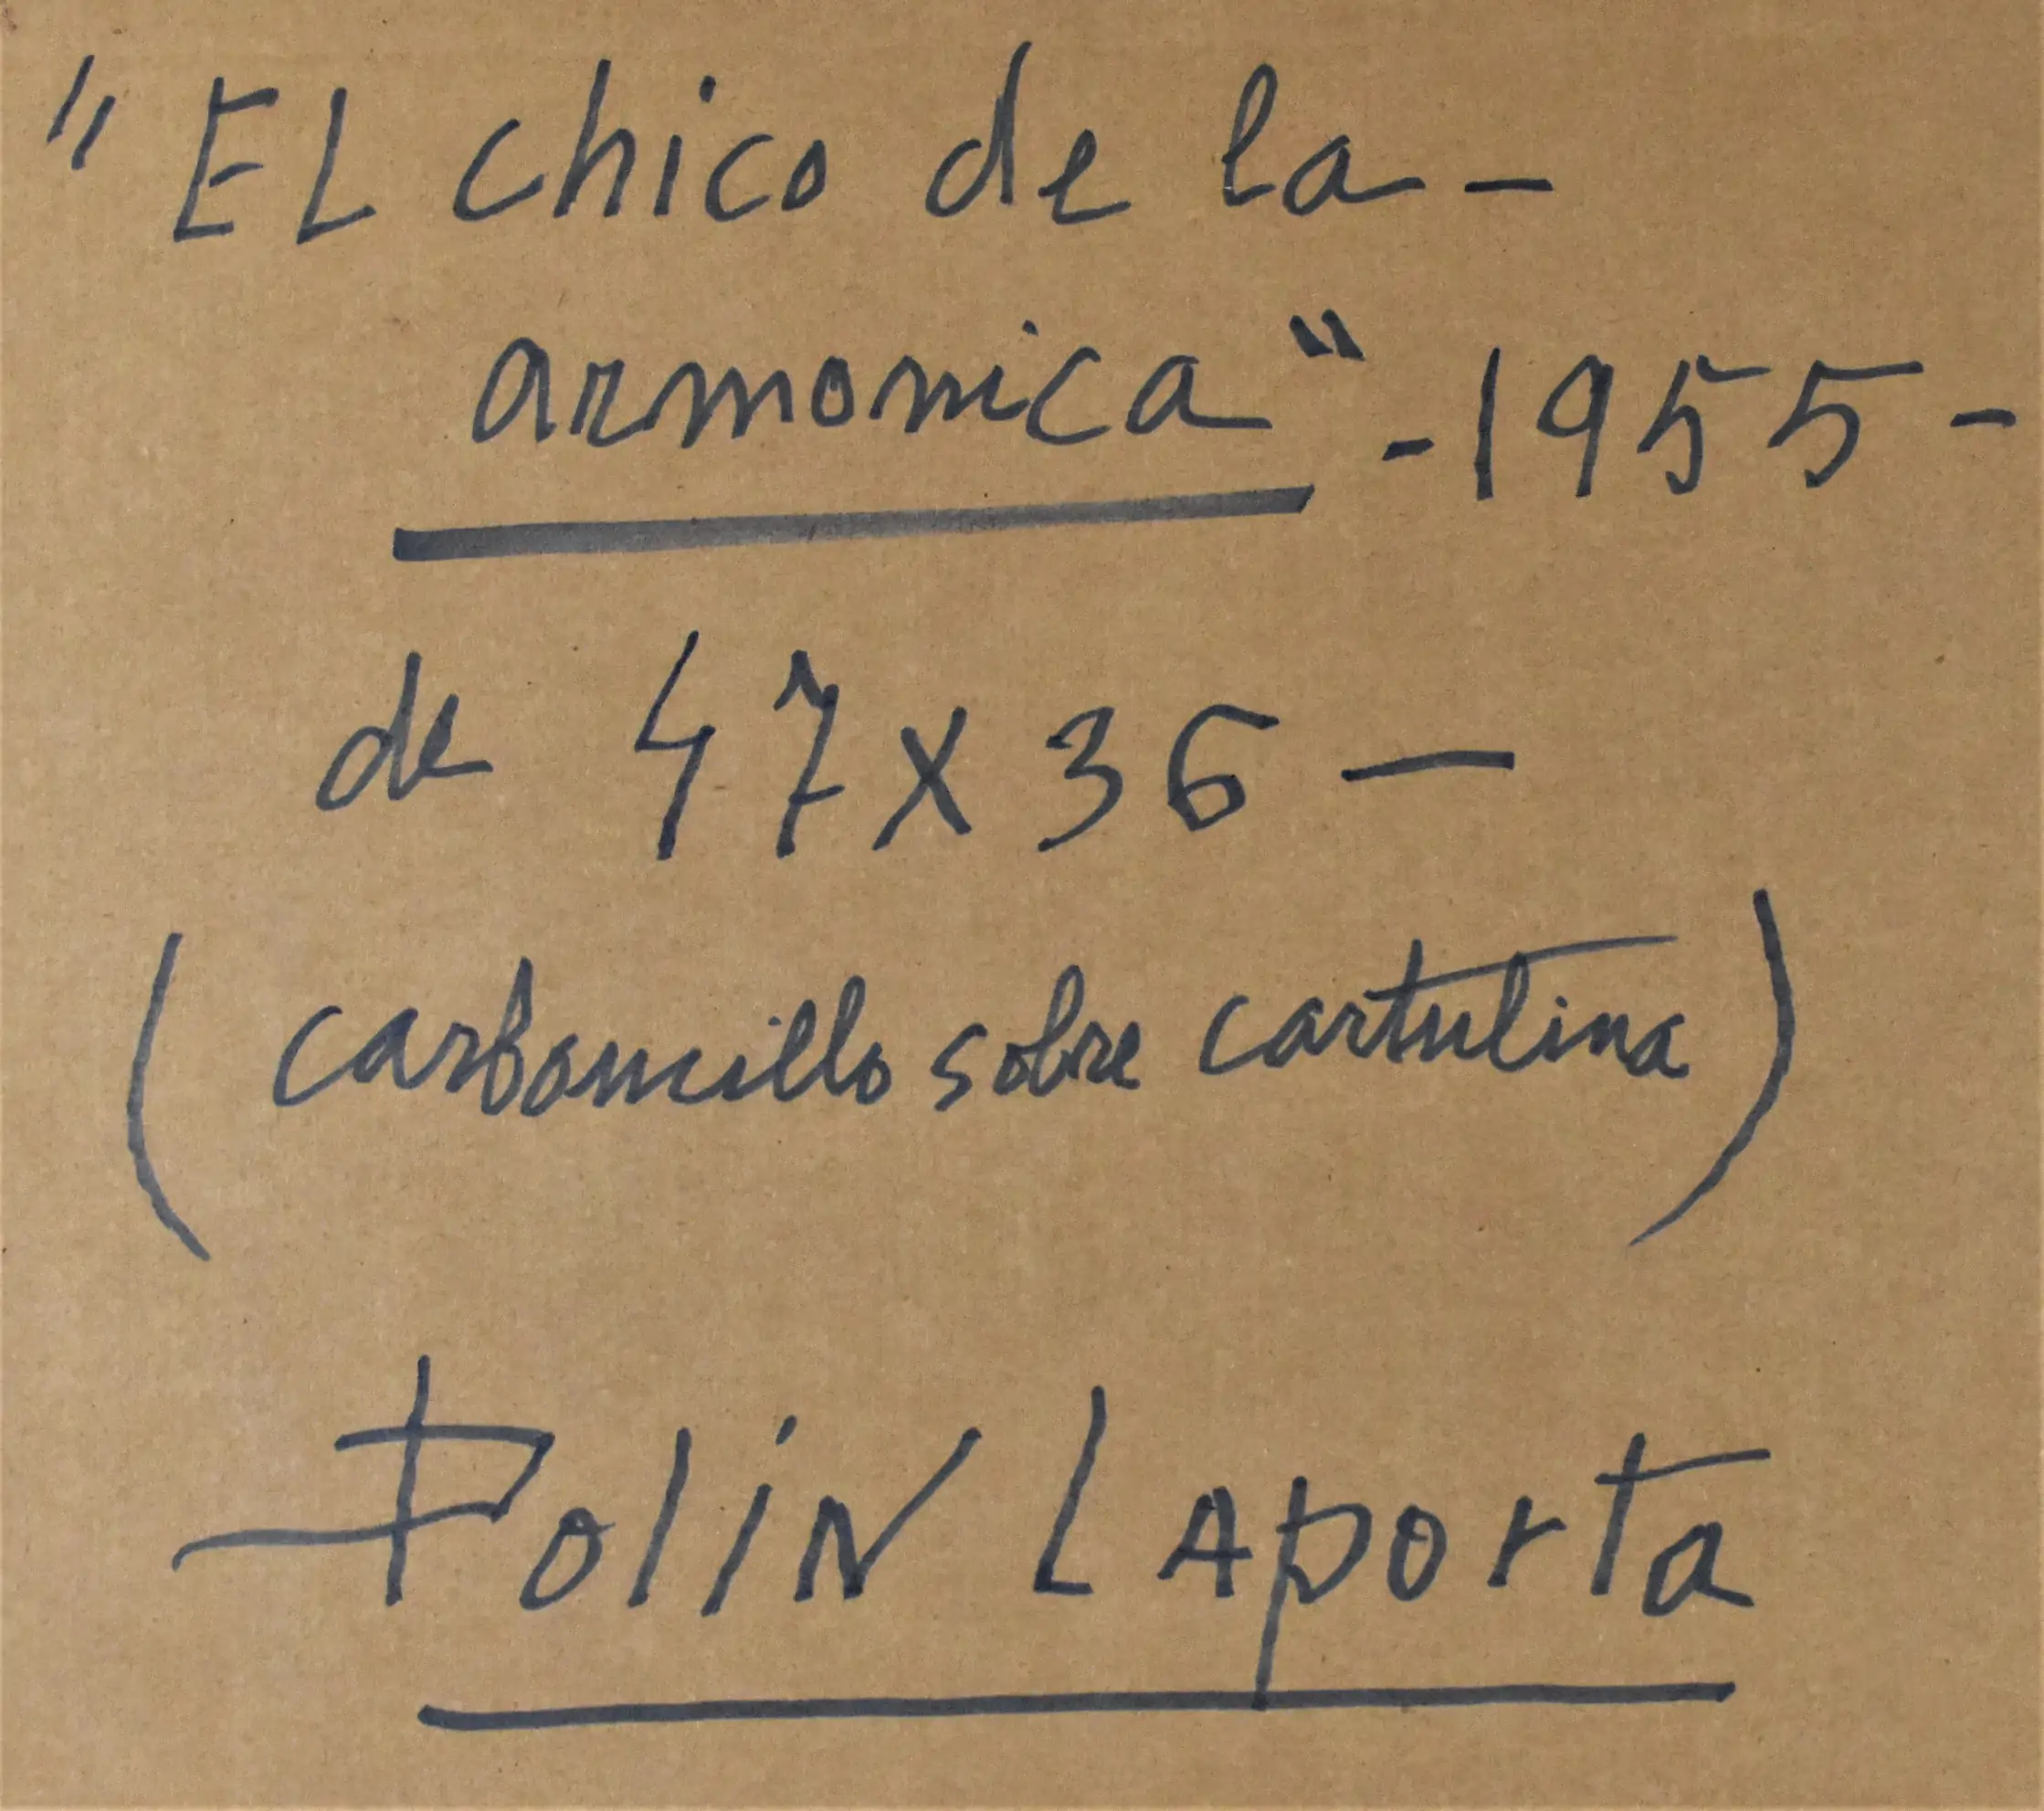 "EL chico de la -
armonica" - 1955 -
de 47 x 36 —
(carboncillo sobre cartulina)
Polin Laporta